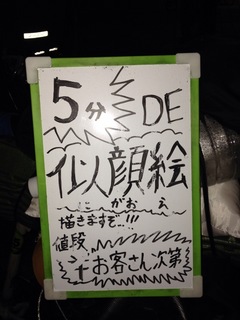 5分 DE
似顔絵
にがおえ
描きますぞ...!!!
値段
お客さん次第